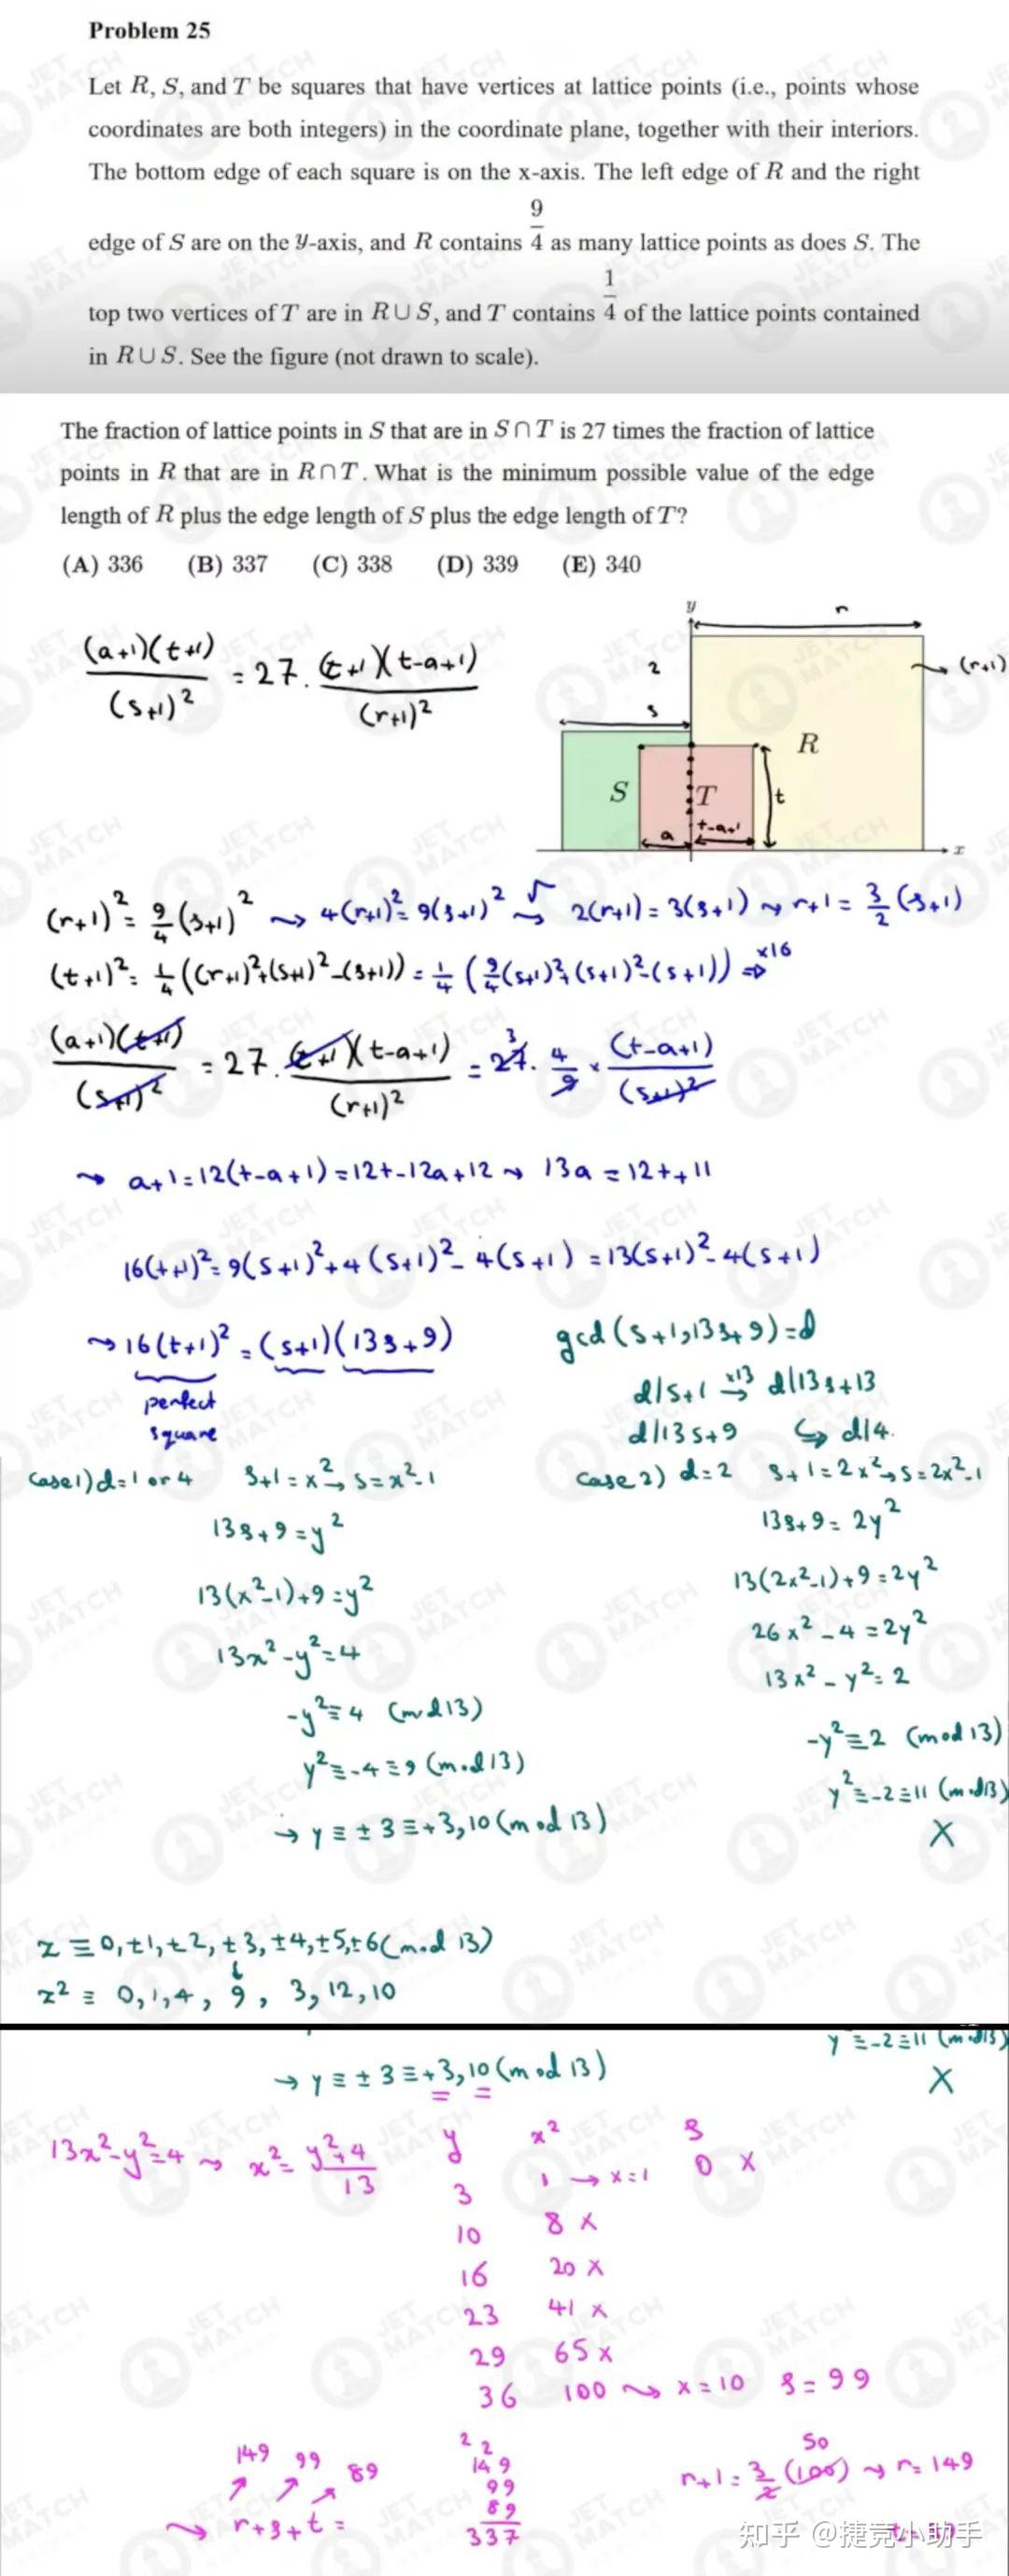 Problem 25
Let R, S, and T be squares that have vertices at lattice points (i.e., points whose
coordinates are both integers) in the coordinate plane, together with their interiors.
The bottom edge of each square is on the x-axis. The left edge of R and the right
edge of S are on the y-axis, and R contains 9/4 as many lattice points as does S. The
top two vertices of T are in R ∪ S, and T contains 1/4 of the lattice points contained
in R ∪ S. See the figure (not drawn to scale).
The fraction of lattice points in S that are in S ∩ T is 27 times the fraction of lattice
points in R that are in R ∩ T. What is the minimum possible value of the edge
length of R plus the edge length of S plus the edge length of T?
(A) 336 (B) 337 (C) 338 (D) 339 (E) 340
y
r
(a+1)(t+1)/(s+1)² = 27. (t+1)(t-a+1)/(r+1)²
2
(r+1)
s
R
S
T
t
a
t-a+1
x
(r+1)² = 9/4 (s+1)² → 4(r+1)² = 9(s+1)² √→ 2(r+1) = 3(s+1) → r+1 = 3/2 (s+1)
(t+1)² = 1/4 ((r+1)²+(s+1)²-(s+1)) = 1/4 (9/4(s+1)²+(s+1)²-(s+1)) ⇒ x16
(a+1)(t+1)/(s+1)² = 27. (t+1)(t-a+1)/(r+1)² = 27. 3 4/9 × (t-a+1)/(s+1)²
→ a+1 = 12(t-a+1) = 12t-12a+12 → 13a = 12t+11
16(t+1)² = 9(s+1)²+4(s+1)²-4(s+1) = 13(s+1)²-4(s+1)
→ 16(t+1)² = (s+1)(13s+9)
perfect
square
gcd(s+1,13s+9)=d
d|s+1 x13→ d|13s+13
d|13s+9 ↪ d|4.
case 1) d=1 or 4 s+1=x² → s=x²-1
13s+9=y²
13(x²-1)+9=y²
13x²-y²=4
-y²≡4 (mod 13)
y²≡-4≡9 (mod 13)
→ y≡±3≡+3,10 (mod 13)
case 2) d=2 s+1=2x² → s=2x²-1
13s+9=2y²
13(2x²-1)+9=2y²
26x²-4=2y²
13x²-y²=2
-y²≡2 (mod 13)
y²≡-2≡11 (mod 13)
X
z≡0,±1,±2,±3,±4,±5,±6 (mod 13)
z²≡0,1,4,9,3,12,10
y≡-2≡11 (mod 13)
→ y≡±3≡+3,10 (mod 13)
X
13x²-y²=4 → x²= y²+4/13
y x² s
3 1 → x=1 0 X
10 8 X
16 20 X
23 41 X
29 65 X
36 100 → x=10 s=99
149 99 89
→ r+s+t=
2 2
149
99
89
337
50
r+1 = 3/2 (100) → r=149
知乎 @捷竞小助手